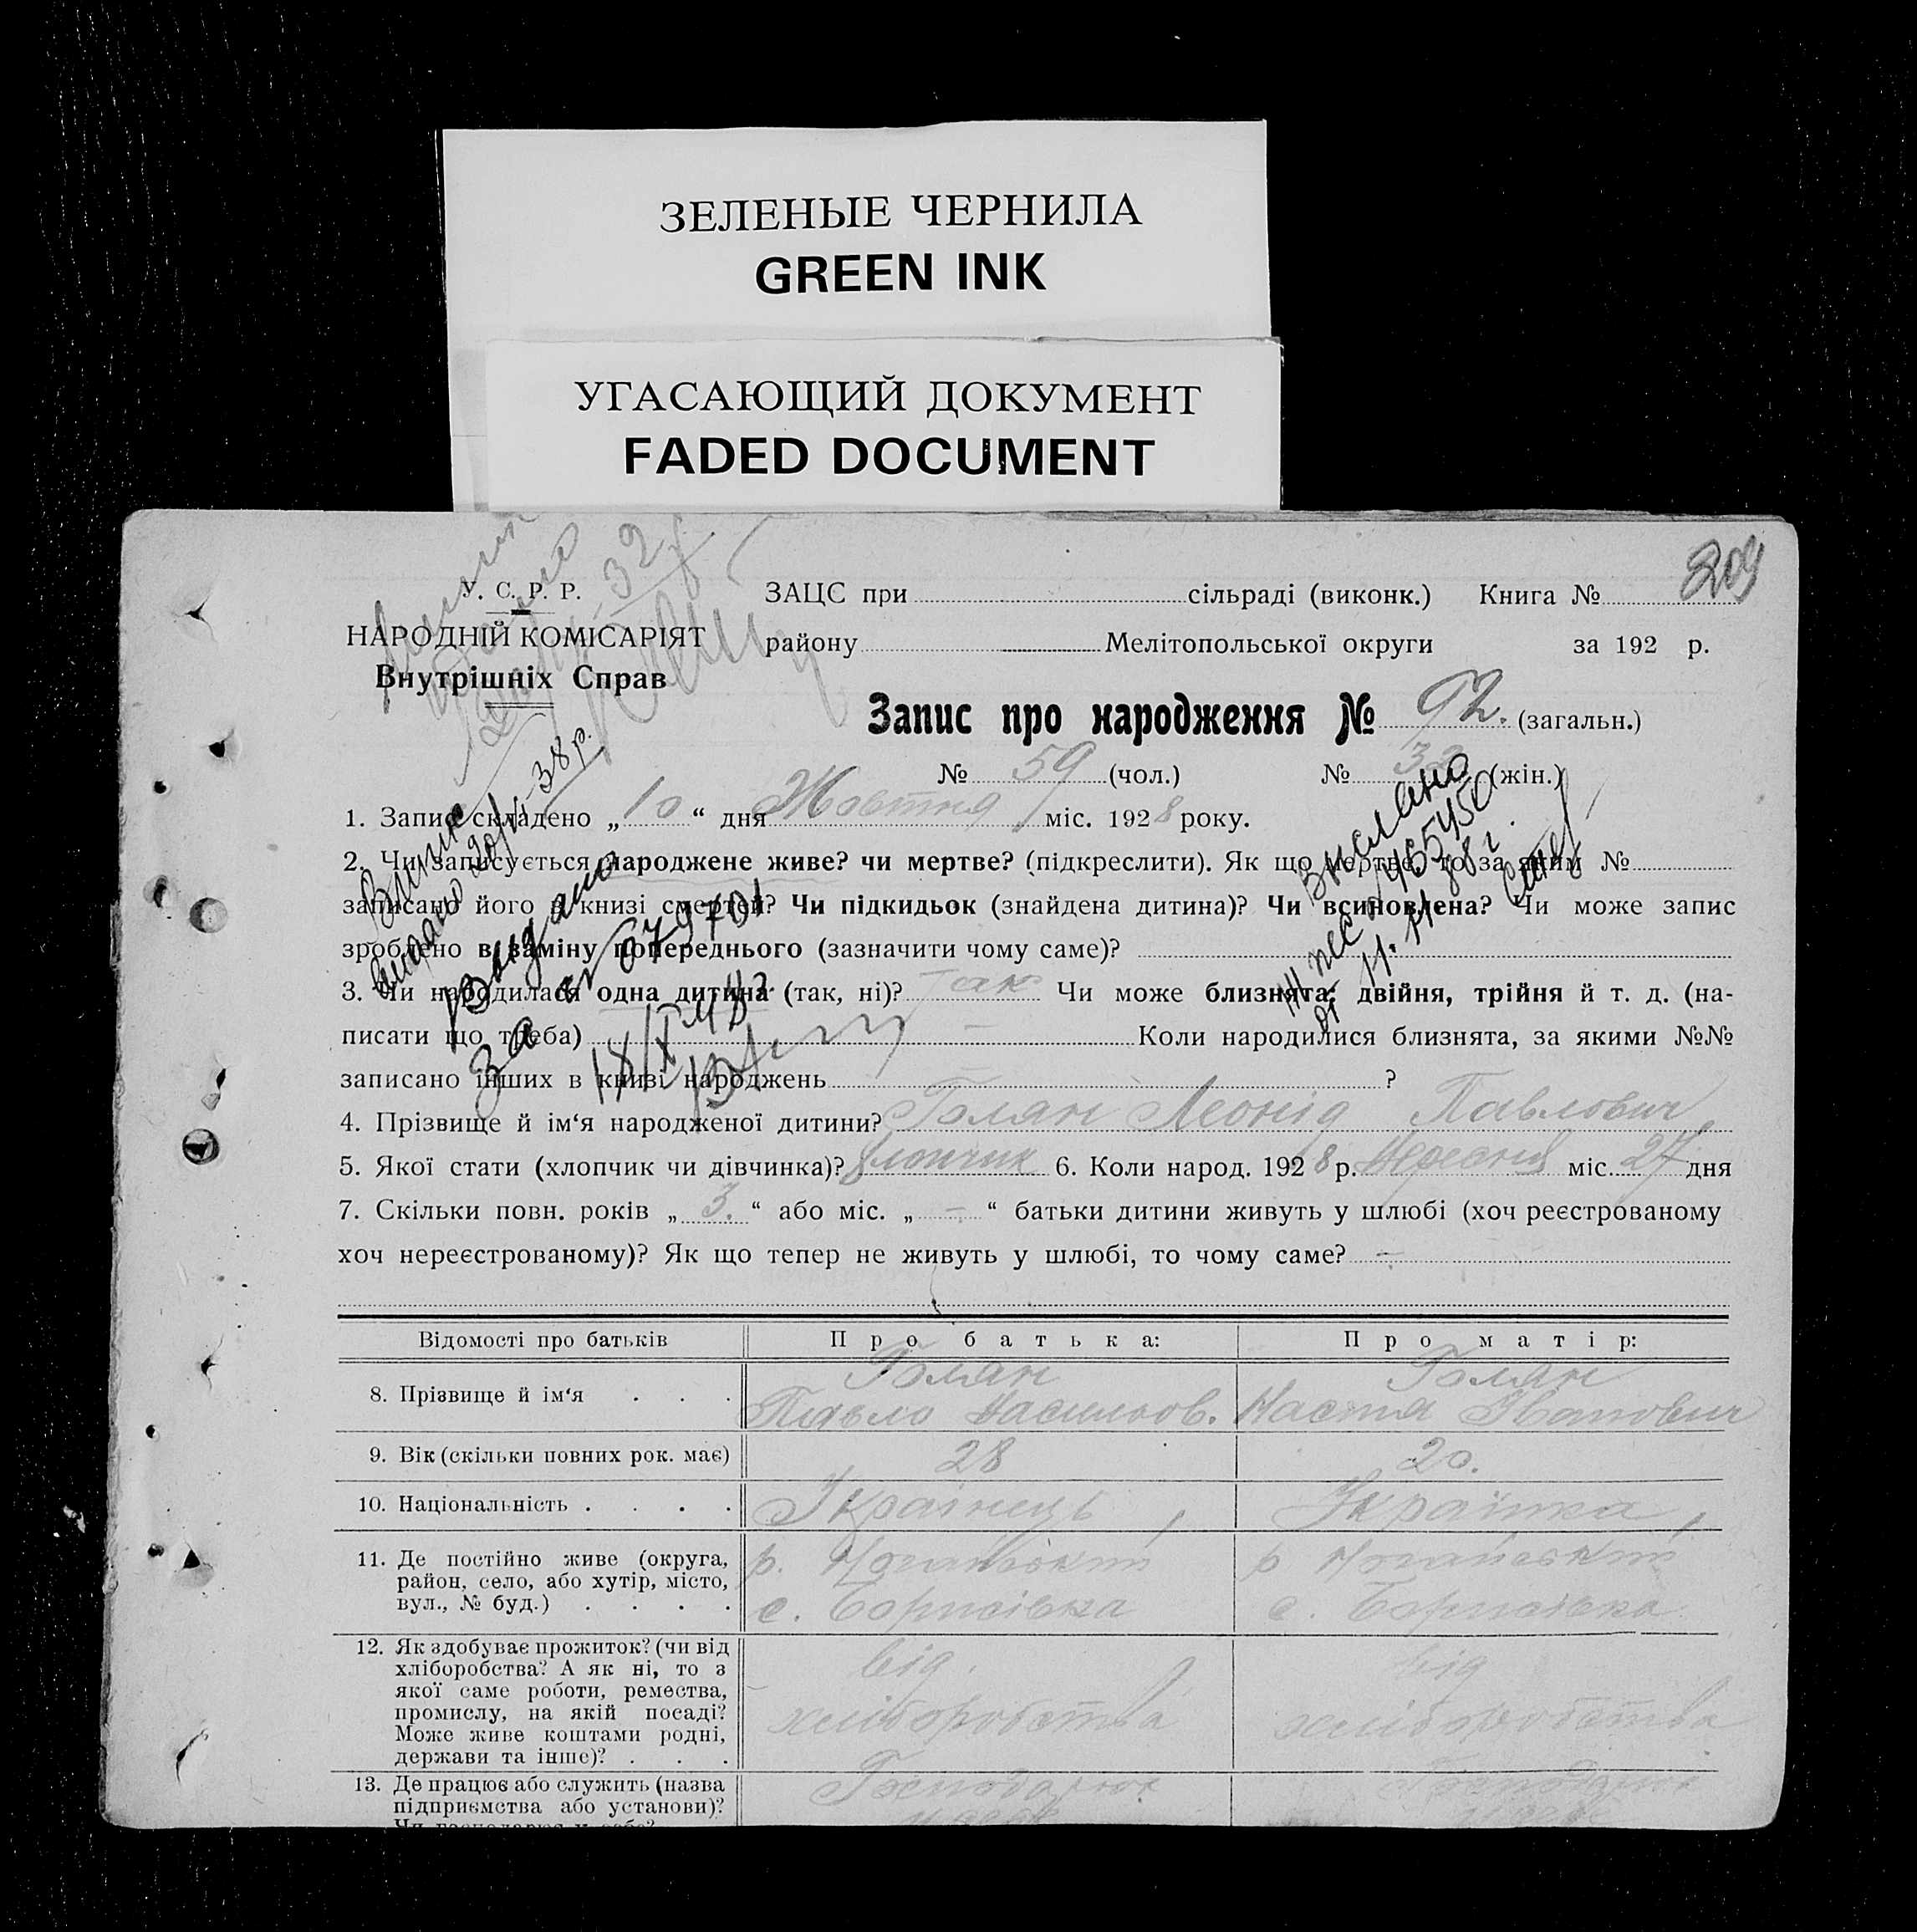 ЗЕЛЕНЫЕ ЧЕРНИЛА
GREEN INK
УГАСАЮЩИЙ ДОКУМЕНТ
FADED DOCUMENT
209
У. С. Р. Р.
НАРОДНІЙ КОМІСАРІЯТ
Внутрішніх Справ
ЗАЦС при сільраді (виконк.) Книга №
району Мелітопольської округи за 192 р.
Запис про народження № 92. (загальн.)
№ 59 (чол.) № 33 (жін.)
1. Запис складено „ 10 “ дня Жовтня міс. 1928 року.
2. Чи записується народжене живе? чи мертве? (підкреслити). Як що мертве, то за яким №
записано його в книзі смертей? Чи підкидьок (знайдена дитина)? Чи всиновлена? Чи може запис
зроблено в заміну попереднього (зазначити чому саме)?
3. Чи народилася одна дитина (так, ні)? Так Чи може близнята: двійня, трійня й т. д. (на-
писати що треба) — Коли народилися близнята, за якими №№
записано інших в книзі народжень ?
4. Прізвище й ім‘я народженої дитини? Голян Леонід Павлович
5. Якої стати (хлопчик чи дівчинка)? Хлопчик 6. Коли народ. 1928 р. Вересня міс. 27 дня
7. Скільки повн. років „ 3. “ або міс. „ - “ батьки дитини живуть у шлюбі (хоч реєстрованому
хоч нереєстрованому)? Як що тепер не живуть у шлюбі, то чому саме? -
Видано
за № 079701
Вислано
Відомості про батьків Про батька: Про матір:
8. Прізвище й ім‘я . . . Голян Голян
Павло Васильов. Настя Іванович
9. Вік (скільки повних рок. має) 28 20.
10. Національність . . . . Українець, Українка,
11. Де постійно живе (округа, р. Ногайський р Ногайський
район, село, або хутір, місто, с. Борисівка с. Борисівка
вул., № буд.) . . . .
12. Як здобуває прожиток? (чи від від від
хліборобства? А як ні, то з
якої саме роботи, ремества, хліборобства хліборобства
промислу, на якій посаді?
Може живе коштами родні,
держави та інше)? . . .
13. Де працює або служить (назва
підприємства або установи)?
Чи господарює у себе?